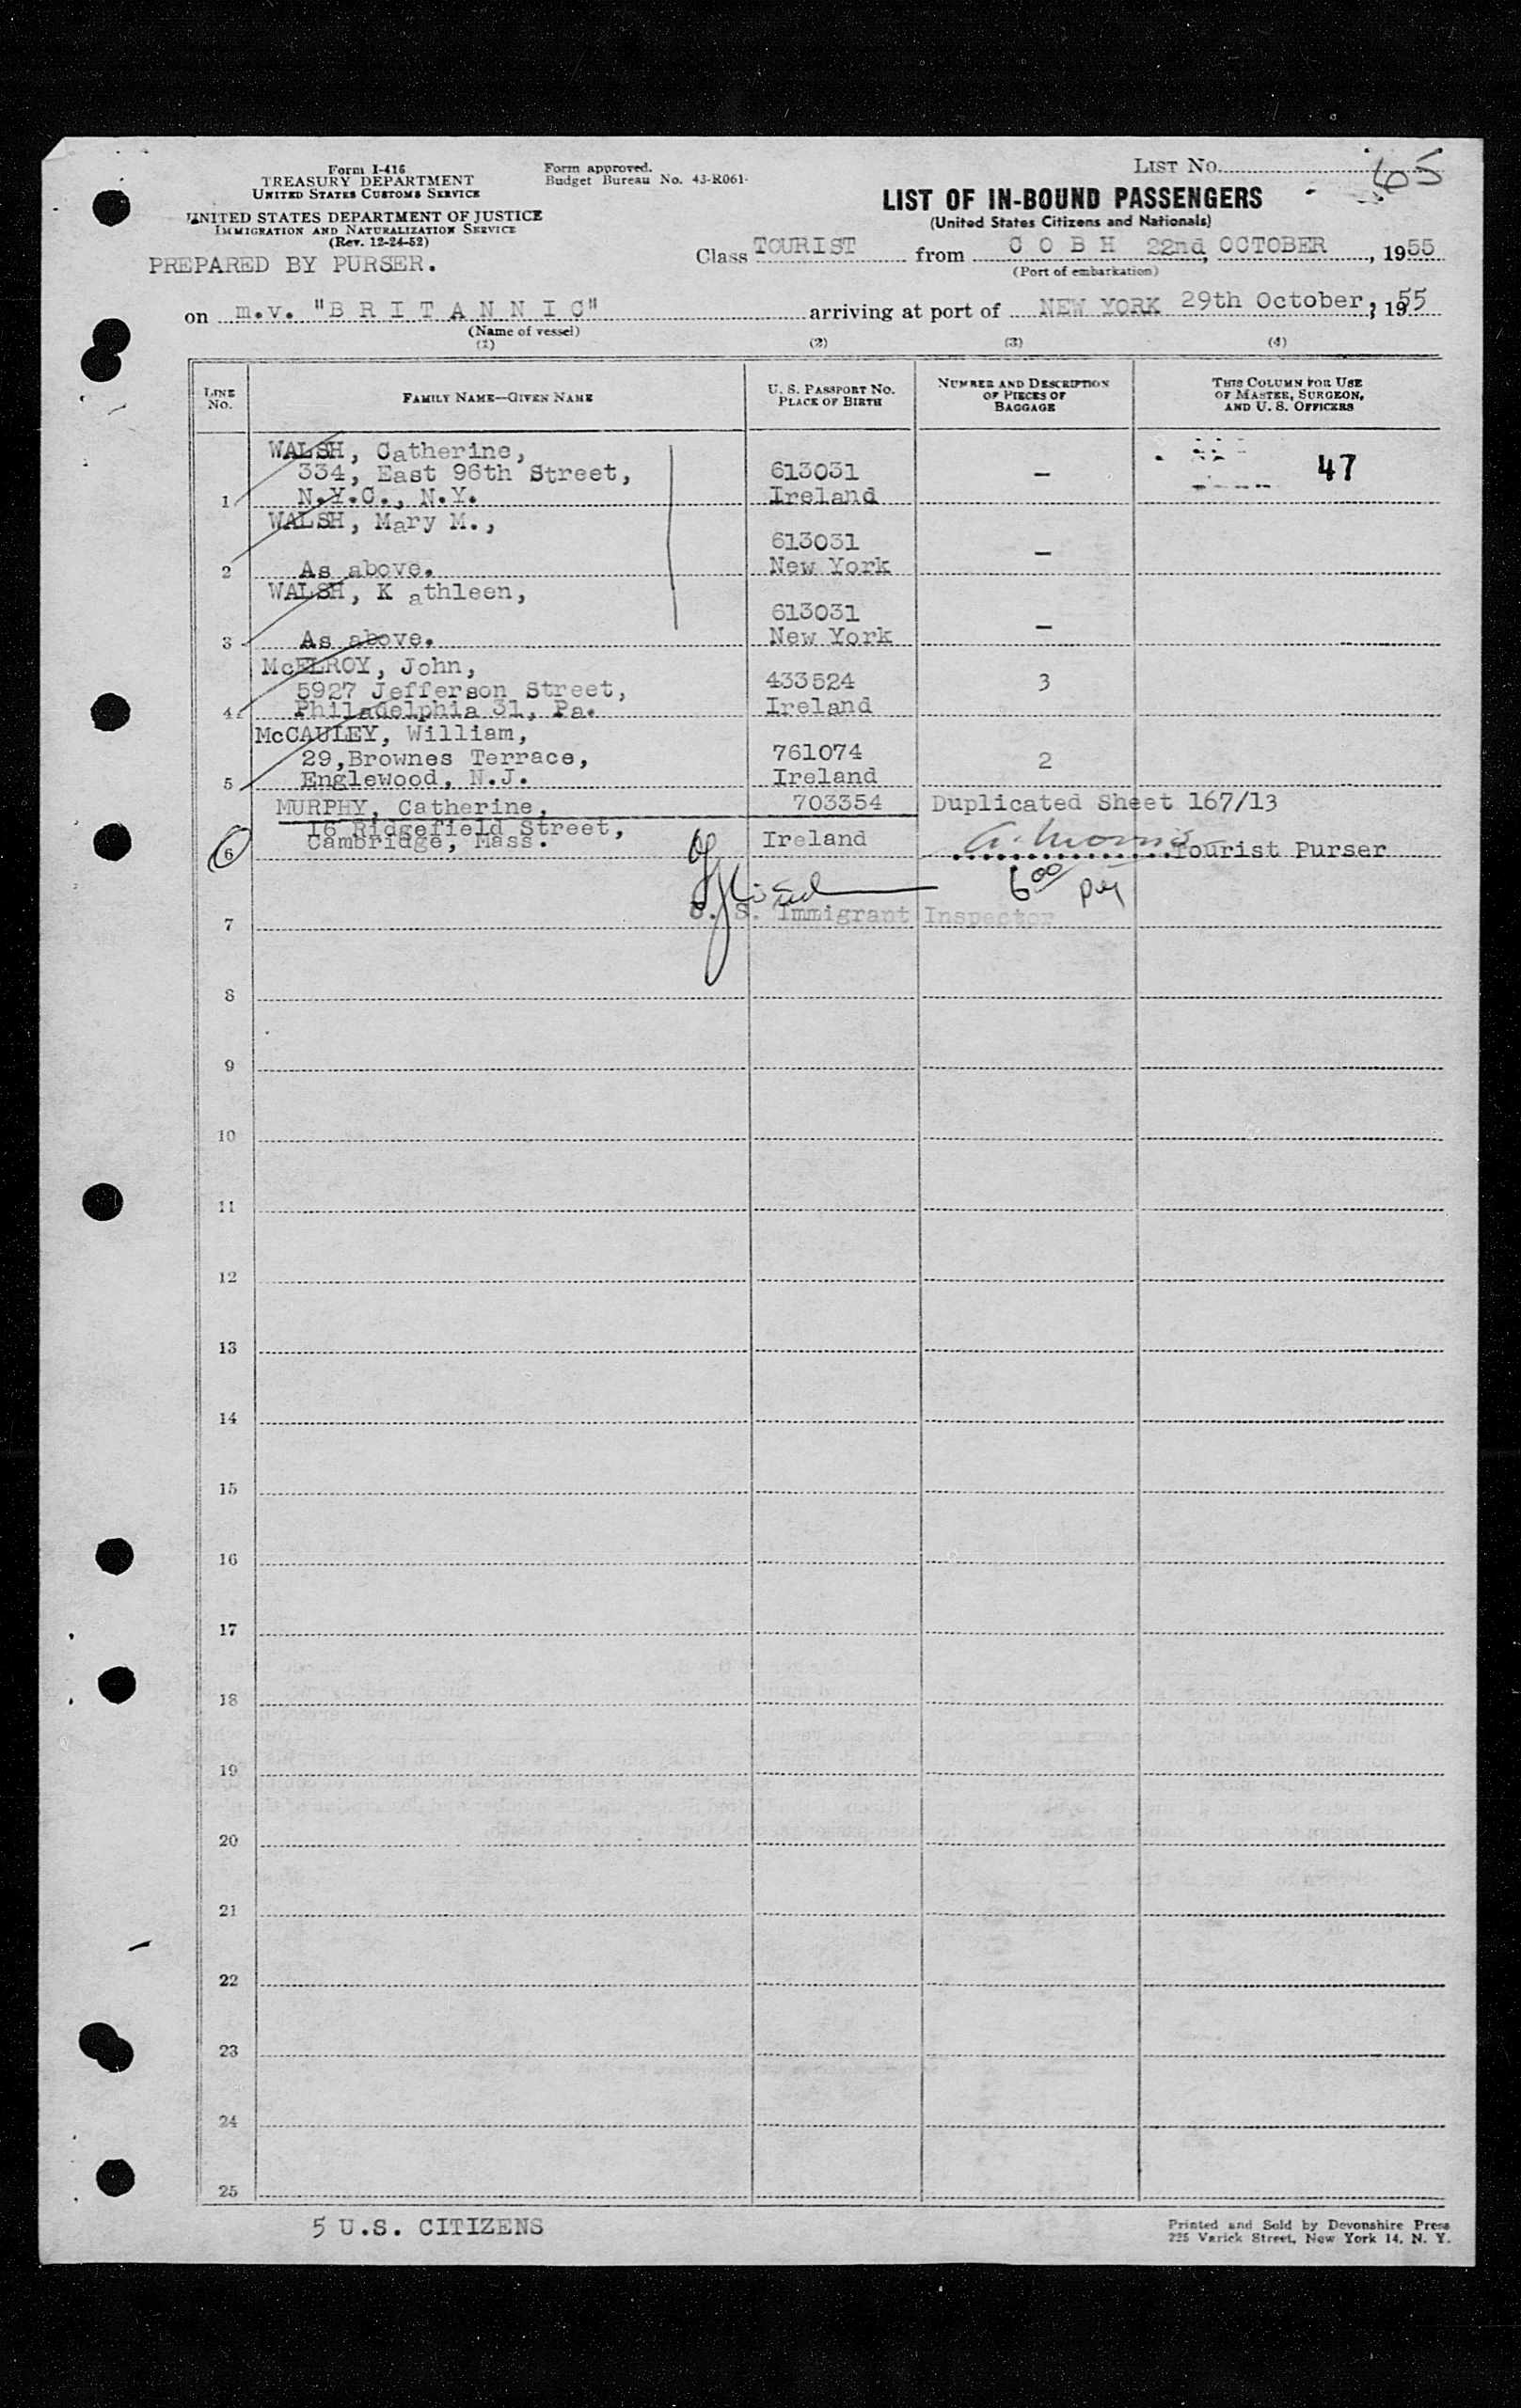 Form I-416
TREASURY DEPARTMENT
UNITED STATES CUSTOMS SERVICE
UNITED STATES DEPARTMENT OF JUSTICE
IMMIGRATION AND NATURALIZATION SERVICE
(Rev. 12-24-52)
PREPARED BY PURSER.
Form approved.
Budget Bureau No. 43-R061.
LIST No. 65
LIST OF IN-BOUND PASSENGERS
(United States Citizens and Nationals)
Class TOURIST from C O B H 22nd, OCTOBER, 1955
(Port of embarkation)
on m.v. "B R I T A N N I C" arriving at port of NEW YORK 29th October, 1955
(Name of vessel)
(1) (2) (3) (4)
LINE No. FAMILY NAME—GIVEN NAME U. S. PASSPORT NO. PLACE OF BIRTH NUMBER AND DESCRIPTION OF PIECES OF BAGGAGE THIS COLUMN FOR USE OF MASTER, SURGEON, AND U. S. OFFICERS
WALSH, Catherine,
334, East 96th Street, 613031 — 47
1 N.Y.C., N.Y. Ireland
WALSH, Mary M.,
613031 —
2 As above. New York
WALSH, K athleen,
613031 —
3 As above. New York
McELROY, John,
5927 Jefferson Street, 433524 3
4 Philadelphia 31, Pa. Ireland
McCAULEY, William,
29,Brownes Terrace, 761074 2
5 Englewood, N.J. Ireland
MURPHY, Catherine, 703354 Duplicated Sheet 167/13
16 Ridgefield Street,
6 Cambridge, Mass. Ireland A. Morris Tourist Purser
6 00
U. S. Immigrant Inspector
7
8
9
10
11
12
13
14
15
16
17
18
19
20
21
22
23
24
25
5 U.S. CITIZENS
Printed and Sold by Devonshire Press
225 Varick Street, New York 14, N. Y.